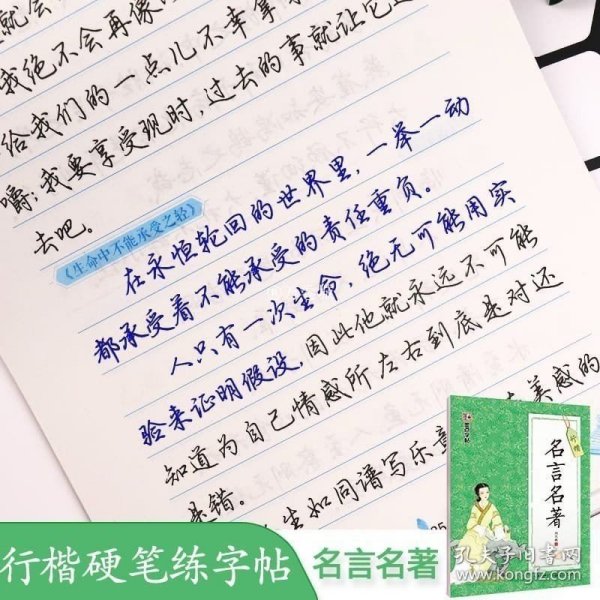 就会
我绝不会再像
给我们的一点儿不幸拿
嚼;我要享受现时,过去的事就让它过
去吧。
《生命中不能承受之轻》
在永恒轮回的世界里,一举一动
都承受着不能承受的责任重负。
人只有一次生命,绝无可能用实
验来证明假设,因此他就永远不可能
知道为自己情感所左右到底是对还
是错。
美感的
生如同谱写乐章
行楷
名言名著
行楷硬笔练字帖
名言名著
孔夫子旧书网
www.kongfz.com